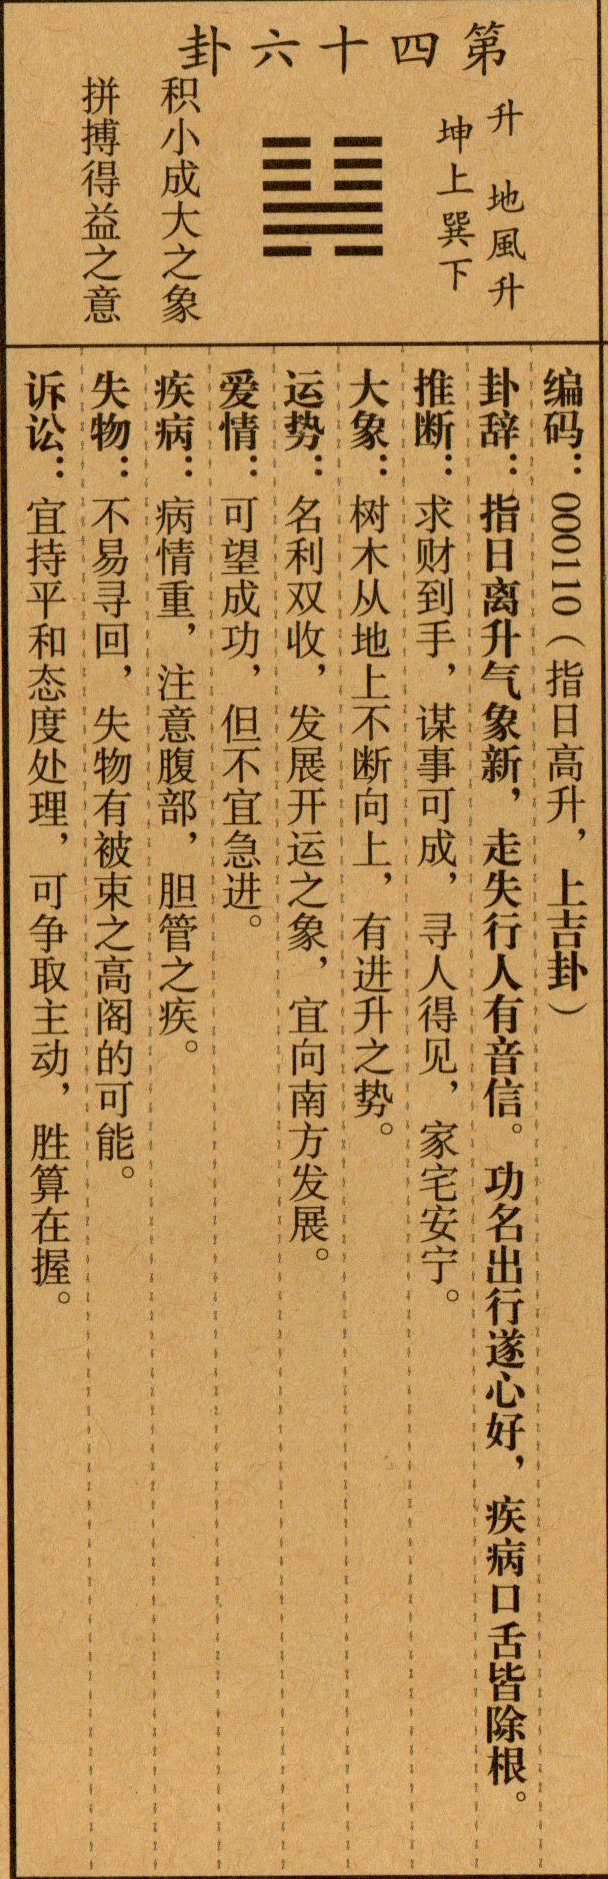 第四十六卦
升 地風升
坤上巽下
积小成大之象
拼搏得益之意
编码：000110（指日高升，上吉卦）
卦辞：指日离升气象新，走失行人有音信。功名出行遂心好，疾病口舌皆除根。
推断：求财到手，谋事可成，寻人得见，家宅安宁。
大象：树木从地上不断向上，有进升之势。
运势：名利双收，发展开运之象，宜向南方发展。
爱情：可望成功，但不宜急进。
疾病：病情重，注意腹部，胆管之疾。
失物：不易寻回，失物有被束之高阁的可能。
诉讼：宜持平和态度处理，可争取主动，胜算在握。